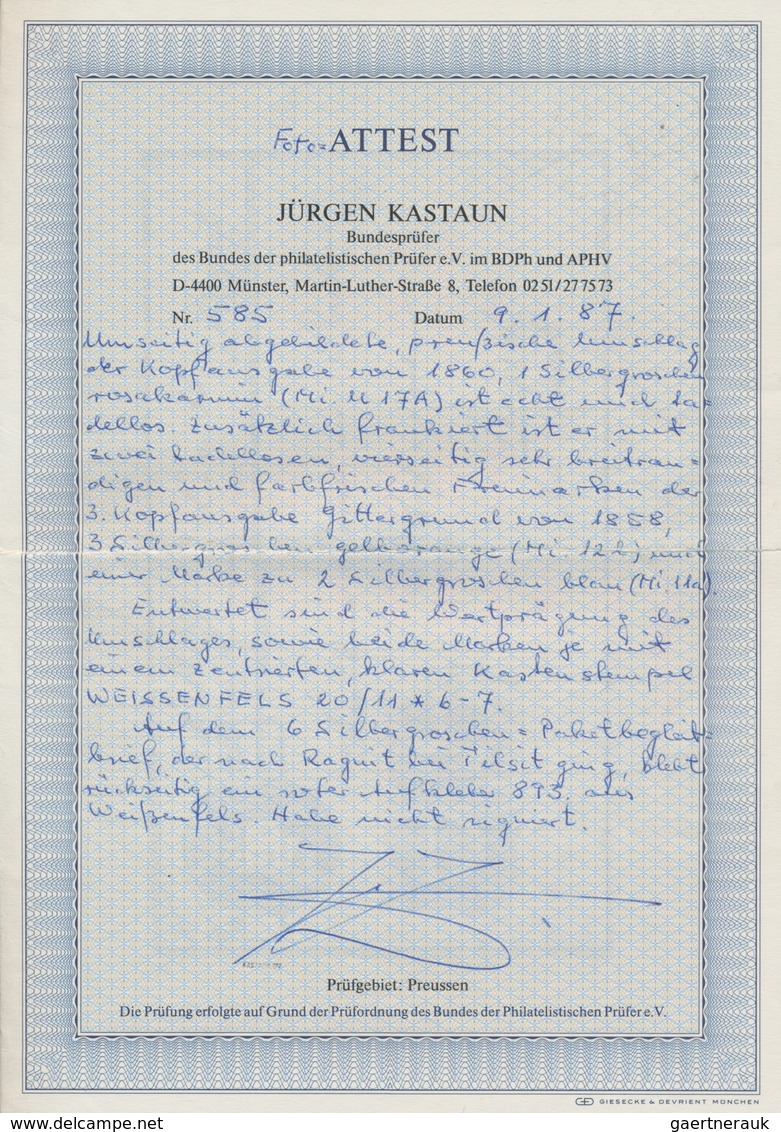 Foto=ATTEST
JÜRGEN KASTAUN
Bundesprüfer
des Bundes der philatelistischen Prüfer e.V. im BDPh und APHV
D-4400 Münster, Martin-Luther-Straße 8, Telefon 0251/277573
Nr. 585 Datum 9. 1. 87.
Umseitig abgebildete, preußische Umschlag
der Kopfausgabe von 1860, 1 Silbergroschen
rosakarmin (Mi. U 17A) ist echt und ta-
dellos. Zusätzlich frankiert ist er mit
zwei tadellosen, vierseitig sehr breitran=
digen und farbfrischen Freimarken der
3. Kopfausgabe Gittergrund von 1858,
3 Silbergroschen gelborange (Mi. 12b) und
einer Marke zu 2 Silbergroschen blau (Mi. 11a).
Entwertet sind die Wertprägung des
Umschlages, sowie beide Marken je mit
einem zentrierten, klaren Kastenstempel
WEISSENFELS 20/11 * 6-7.
Auf dem 6 Silbergroschen = Paketbegleit=
brief, der nach Ragnit bei Tilsit ging, klebt
rückseitig ein roter Aufkleber 893. aus
Weißenfels. Habe nicht signiert.
Prüfgebiet: Preussen
Die Prüfung erfolgte auf Grund der Prüfordnung des Bundes der Philatelistischen Prüfer e.V.
GIESECKE & DEVRIENT MÜNCHEN
www.delcampe.net gaertnerauk